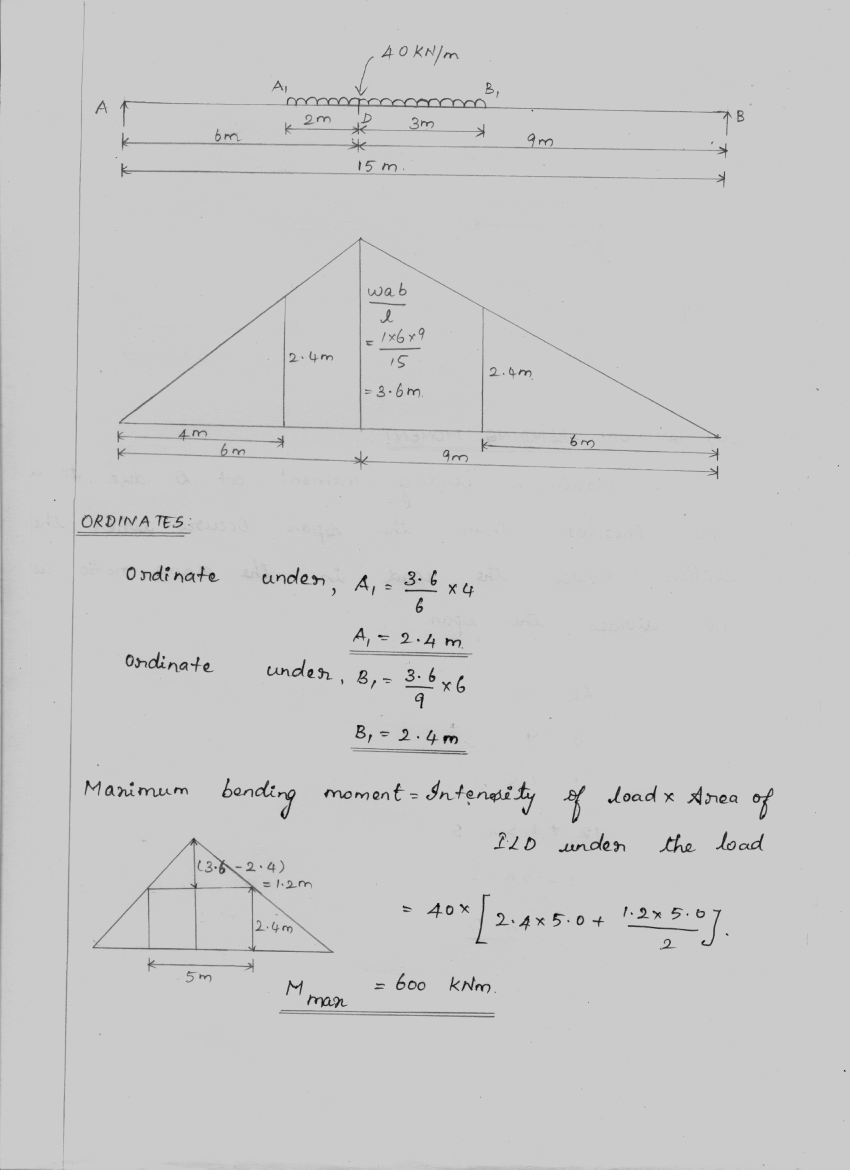 40 KN/m
A₁ B₁
A B
2m D 3m
6m 9m
15 m.
wab/l
= 1×6×9/15
2.4m
2.4m
= 3.6m.
4m 6m
6m 9m
ORDINATES:
Ordinate under, A₁ = 3.6/6 × 4
A₁ = 2.4 m
Ordinate under, B₁ = 3.6/9 × 6
B₁ = 2.4 m
Maximum bending moment = Intensity of load × Area of
ILD under the load
(3.6 - 2.4)
= 1.2m
2.4m
= 40 × [2.4 × 5.0 + 1.2 × 5.0/2].
5m
M max = 600 kNm.